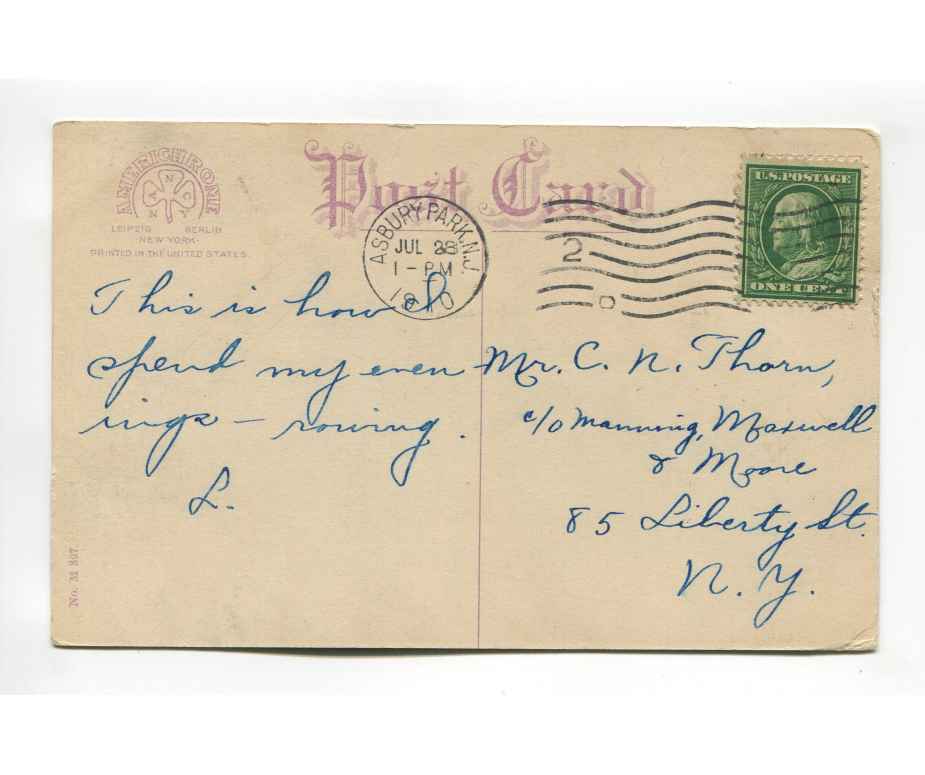 AMERICHROME
N C Y
N Y
LEIPZIG BERLIN
NEW YORK
PRINTED IN THE UNITED STATES
Post Card
ASBURY PARK, N.J.
JUL 28
1-PM
1910
2
U.S. POSTAGE
ONE CENT
This is how I
spend my even
ings – rowing.
L.
Mr. C. N. Thorn,
c/o Manning, Maxwell
& Moore
85 Liberty St.
N. Y.
No. M 897.